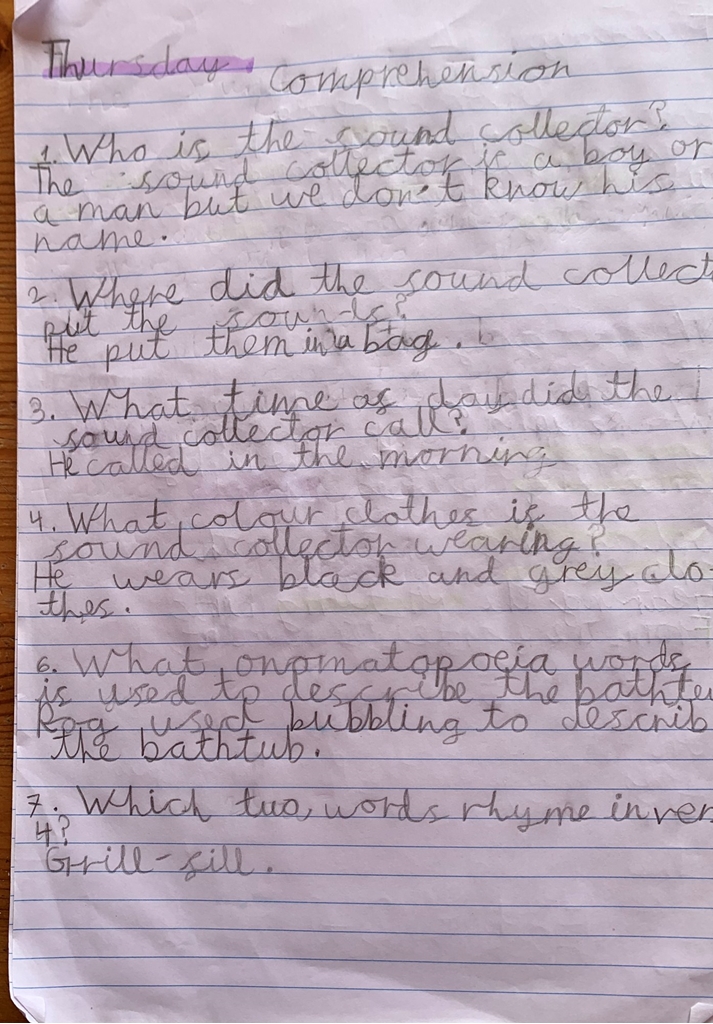 Thursday Comprehension
1. Who is the sound collector?
The sound collector is a boy or
a man but we don't know his
name.
2. Where did the sound collect
put the sounds?
He put them in a bag.
3. What time as day did the
sound collector call?
He called in the morning
4. What colour clothes is the
sound collector wearing?
He wears black and grey clo-
thes.
6. What onomatopoeia words
is used to describe the bathtu
Rog used bubbling to describ
the bathtub.
7. Which two words rhyme in ver
4?
Grill-sill.